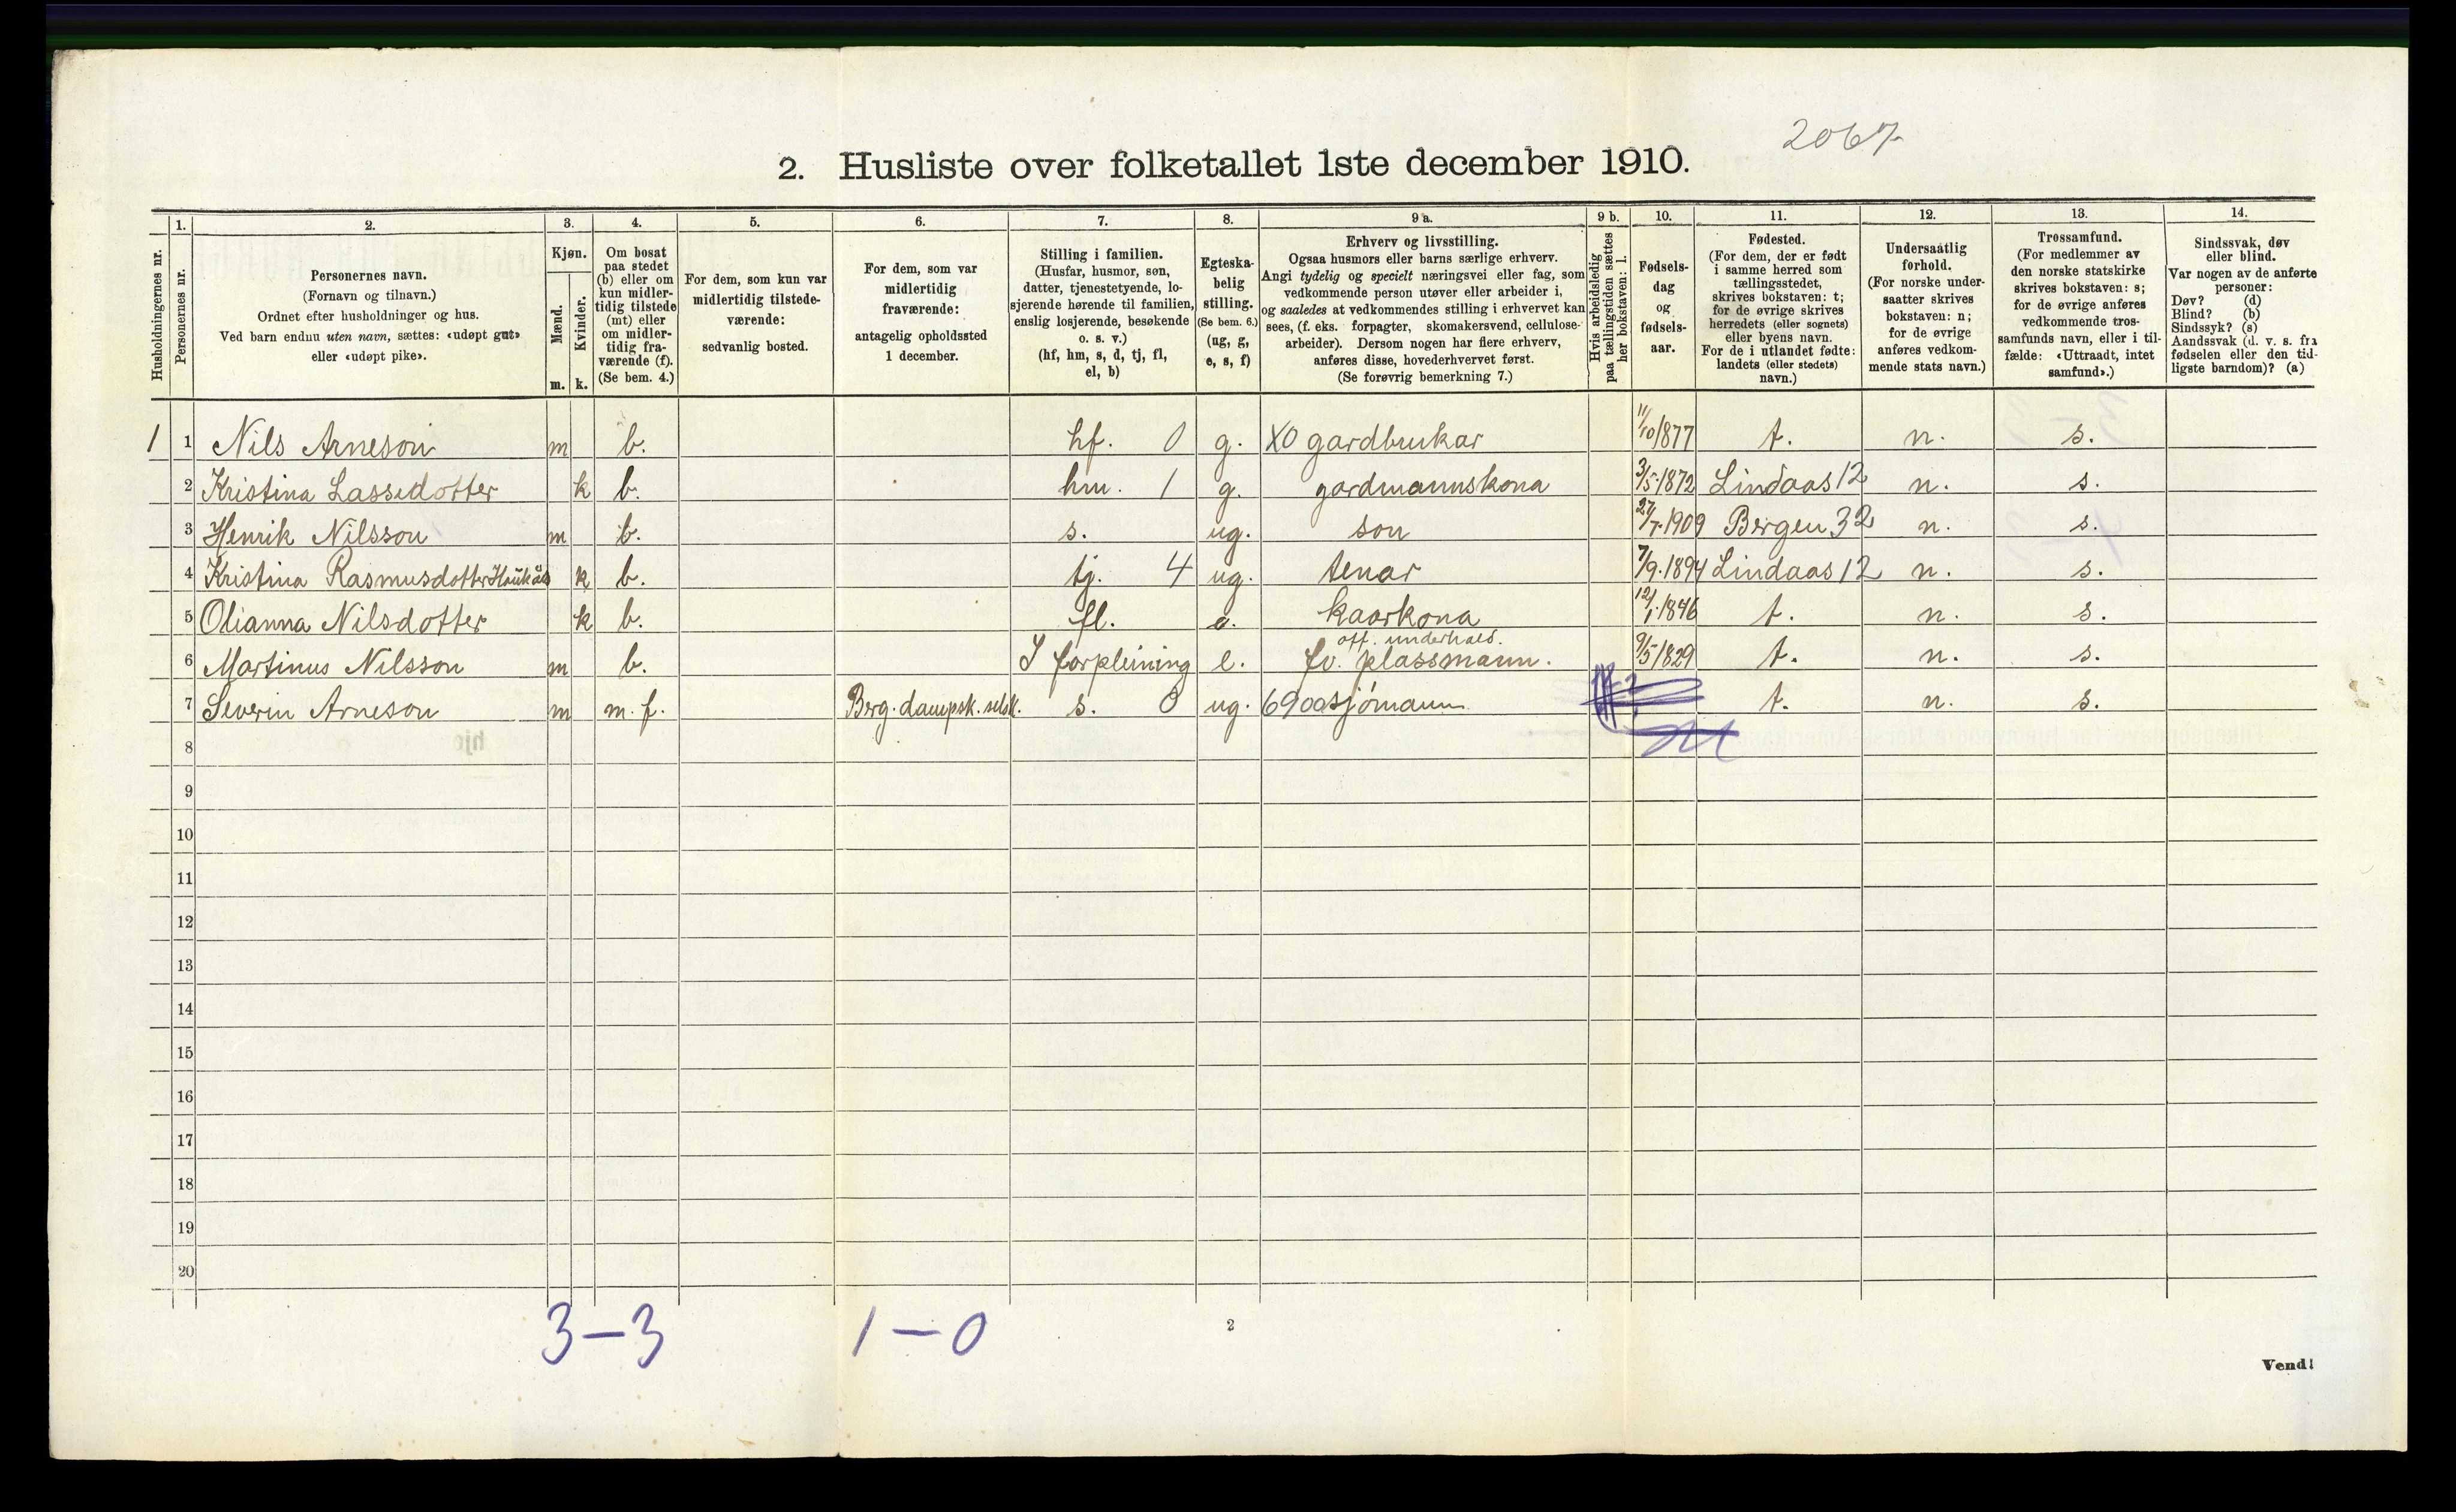 2067
2. Husliste over folketallet 1ste december 1910.
Husholdningernes nr.
1. Personernes nr.
2. Personernes navn. (Fornavn og tilnavn.) Ordnet efter husholdninger og hus. Ved barn endnu uten navn, sættes: «udøpt gut» eller «udøpt pike».
3. Kjøn. Mænd. m. Kvinder. k.
4. Om bosat paa stedet (b) eller om kun midlertidig tilstede (mt) eller om midlertidig fraværende (f). (Se bem. 4.)
5. For dem, som kun var midlertidig tilstedeværende: sedvanlig bosted.
6. For dem, som var midlertidig fraværende: antagelig opholdssted 1 december.
7. Stilling i familien. (Husfar, husmor, søn, datter, tjenestetyende, losjerende hørende til familien, enslig losjerende, besøkende o. s. v.) (hf, hm, s, d, tj, fl, el, b)
8. Egteskabelig stilling. (Se bem. 6.) (ug, g, e, s, f)
9 a. Erhverv og livsstilling. Ogsaa husmors eller barns særlige erhverv. Angi tydelig og specielt næringsvei eller fag, som vedkommende person utøver eller arbeider i, og saaledes at vedkommendes stilling i erhvervet kan sees, (f. eks. forpagter, skomakersvend, cellulosearbeider). Dersom nogen har flere erhverv, anføres disse, hovederhvervet først. (Se forøvrig bemerkning 7.)
9 b. Hvis arbeidsledig paa tællingstiden sættes her bokstaven: l.
10. Fødselsdag og fødselsaar.
11. Fødested. (For dem, der er født i samme herred som tællingsstedet, skrives bokstaven: t; for de øvrige skrives herredets (eller sognets) eller byens navn. For de i utlandet fødte: landets (eller stedets) navn.)
12. Undersaatlig forhold. (For norske undersaatter skrives bokstaven: n; for de øvrige anføres vedkommende stats navn.)
13. Trossamfund. (For medlemmer av den norske statskirke skrives bokstaven: s; for de øvrige anføres vedkommende trossamfunds navn, eller i tilfælde: «Uttraadt, intet samfund».)
14. Sindssvak, døv eller blind. Var nogen av de anførte personer: Døv? (d) Blind? (b) Sindssyk? (s) Aandssvak (d. v. s. fra fødselen eller den tidligste barndom)? (a)
1 1 Nils Arneson m b. hf. 0 g. X0 gardbrukar 11/10/877 t. n. s.
2 Kristina Lassedotter k b. hm. 1 g. gardmannskona 3/5.1872 Lindaas 12 n. s.
3 Henrik Nilsson m b. s. ug. son 27/7.1909 Bergen 32 n. s.
4 Kristina Rasmusdotter Haukås k b. tj. 4 ug. tenar 7/9.1894 Lindaas 12 n. s.
5 Olianna Nilsdotter k b. fl. e. kaarkona 12/1.1846 t. n. s.
off. underhald.
6 Martinus Nilsson m b. I forpleining e. fv. plassmann. 9/5 1829 t. n. s.
7 Severin Arneson m m. f. Berg. dampsk. selsk. s. 0 ug. 6900 sjømann t. n. s.
8
9
10
11
12
13
14
15
16
17
18
19
20
3-3 1-0
2
Vend!